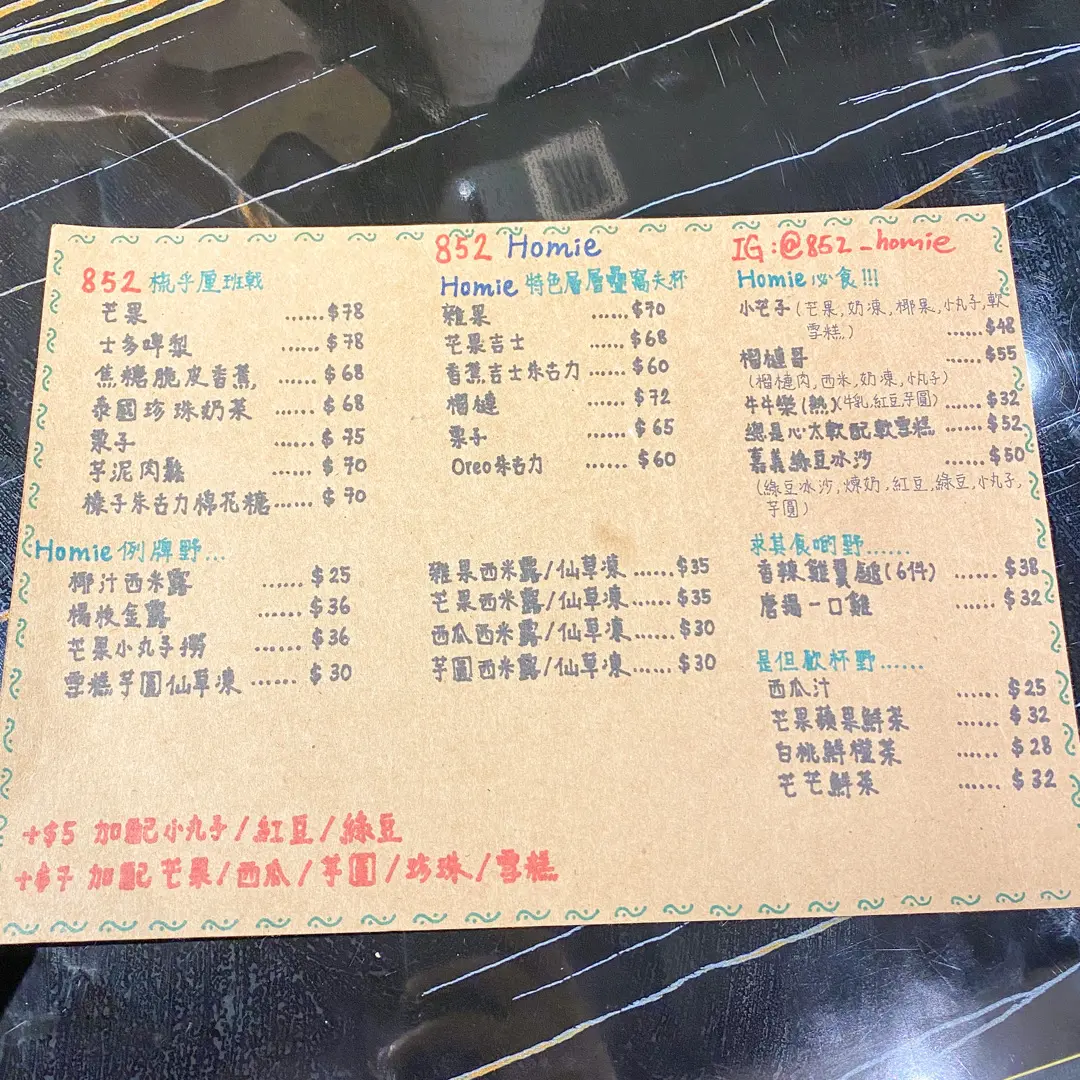 852 Homie
IG:@852_homie
852 梳乎厘班戟
芒果 ......$78
士多啤梨 ...... $78
焦糖脆皮香蕉 ...... $68
泰國珍珠奶茶 ...... $68
栗子 ...... $75
芋泥肉鬆 ...... $70
榛子朱古力棉花糖...... $70
Homie 特色層層疊窩夫杯
雜果 ......$70
芒果吉士 ...... $68
香蕉吉士朱古力 ...... $60
榴槤 ...... $72
栗子 ...... $65
Oreo朱古力 ...... $60
Homie 必食!!!
小芒子(芒果,奶凍,椰果,小丸子,軟
雪糕) ......$48
榴槤哥 ......$55
(榴槤肉,西米,奶凍,小丸子)
牛牛樂(熱)(牛乳,紅豆芋圓)......$32
總是心太軟配軟雪糕 ......$52
嘉義綠豆冰沙 ......$50
(綠豆冰沙,煉奶,紅豆,綠豆,小丸子,
芋圓)
Homie 例牌野...
椰汁西米露 ...... $25
楊枝金露 ...... $36
芒果小丸子撈 ....... $36
雪糕芋圓仙草凍 ...... $30
雜果西米露/仙草凍 ......$35
芒果西米露/仙草凍...... $35
西瓜西米露/仙草凍......$30
芋圓西米露/仙草凍......$30
求其食啲野......
香辣雞翼鎚(6件) ...... $38
唐揚一口雞 ...... $32
是但飲杯野......
西瓜汁 ...... $25
芒果蘋果鮮茶 ...... $32
白桃鮮橙茶 ...... $28
芒芒鮮茶 ...... $32
+$5 加配小丸子/紅豆/綠豆
+$7 加配芒果/西瓜/芋圓/珍珠/雪糕